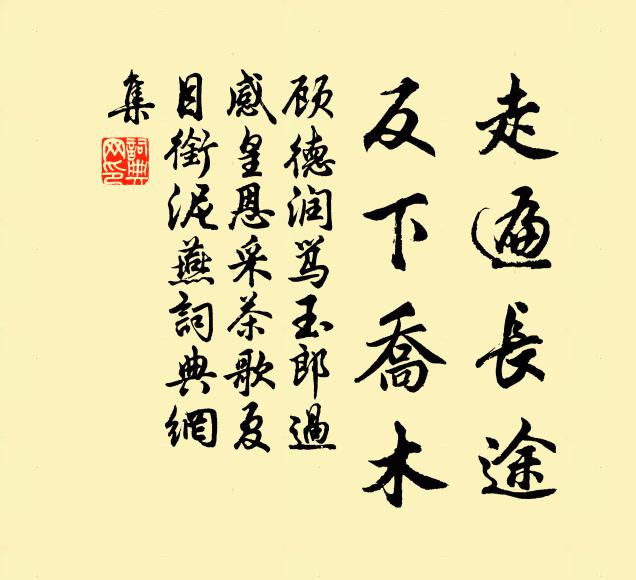 走遍長途
反下喬木
顾德润骂玉郎過
感皇恩采茶歌夏
目銜泥燕詞典網
集
詞典網印